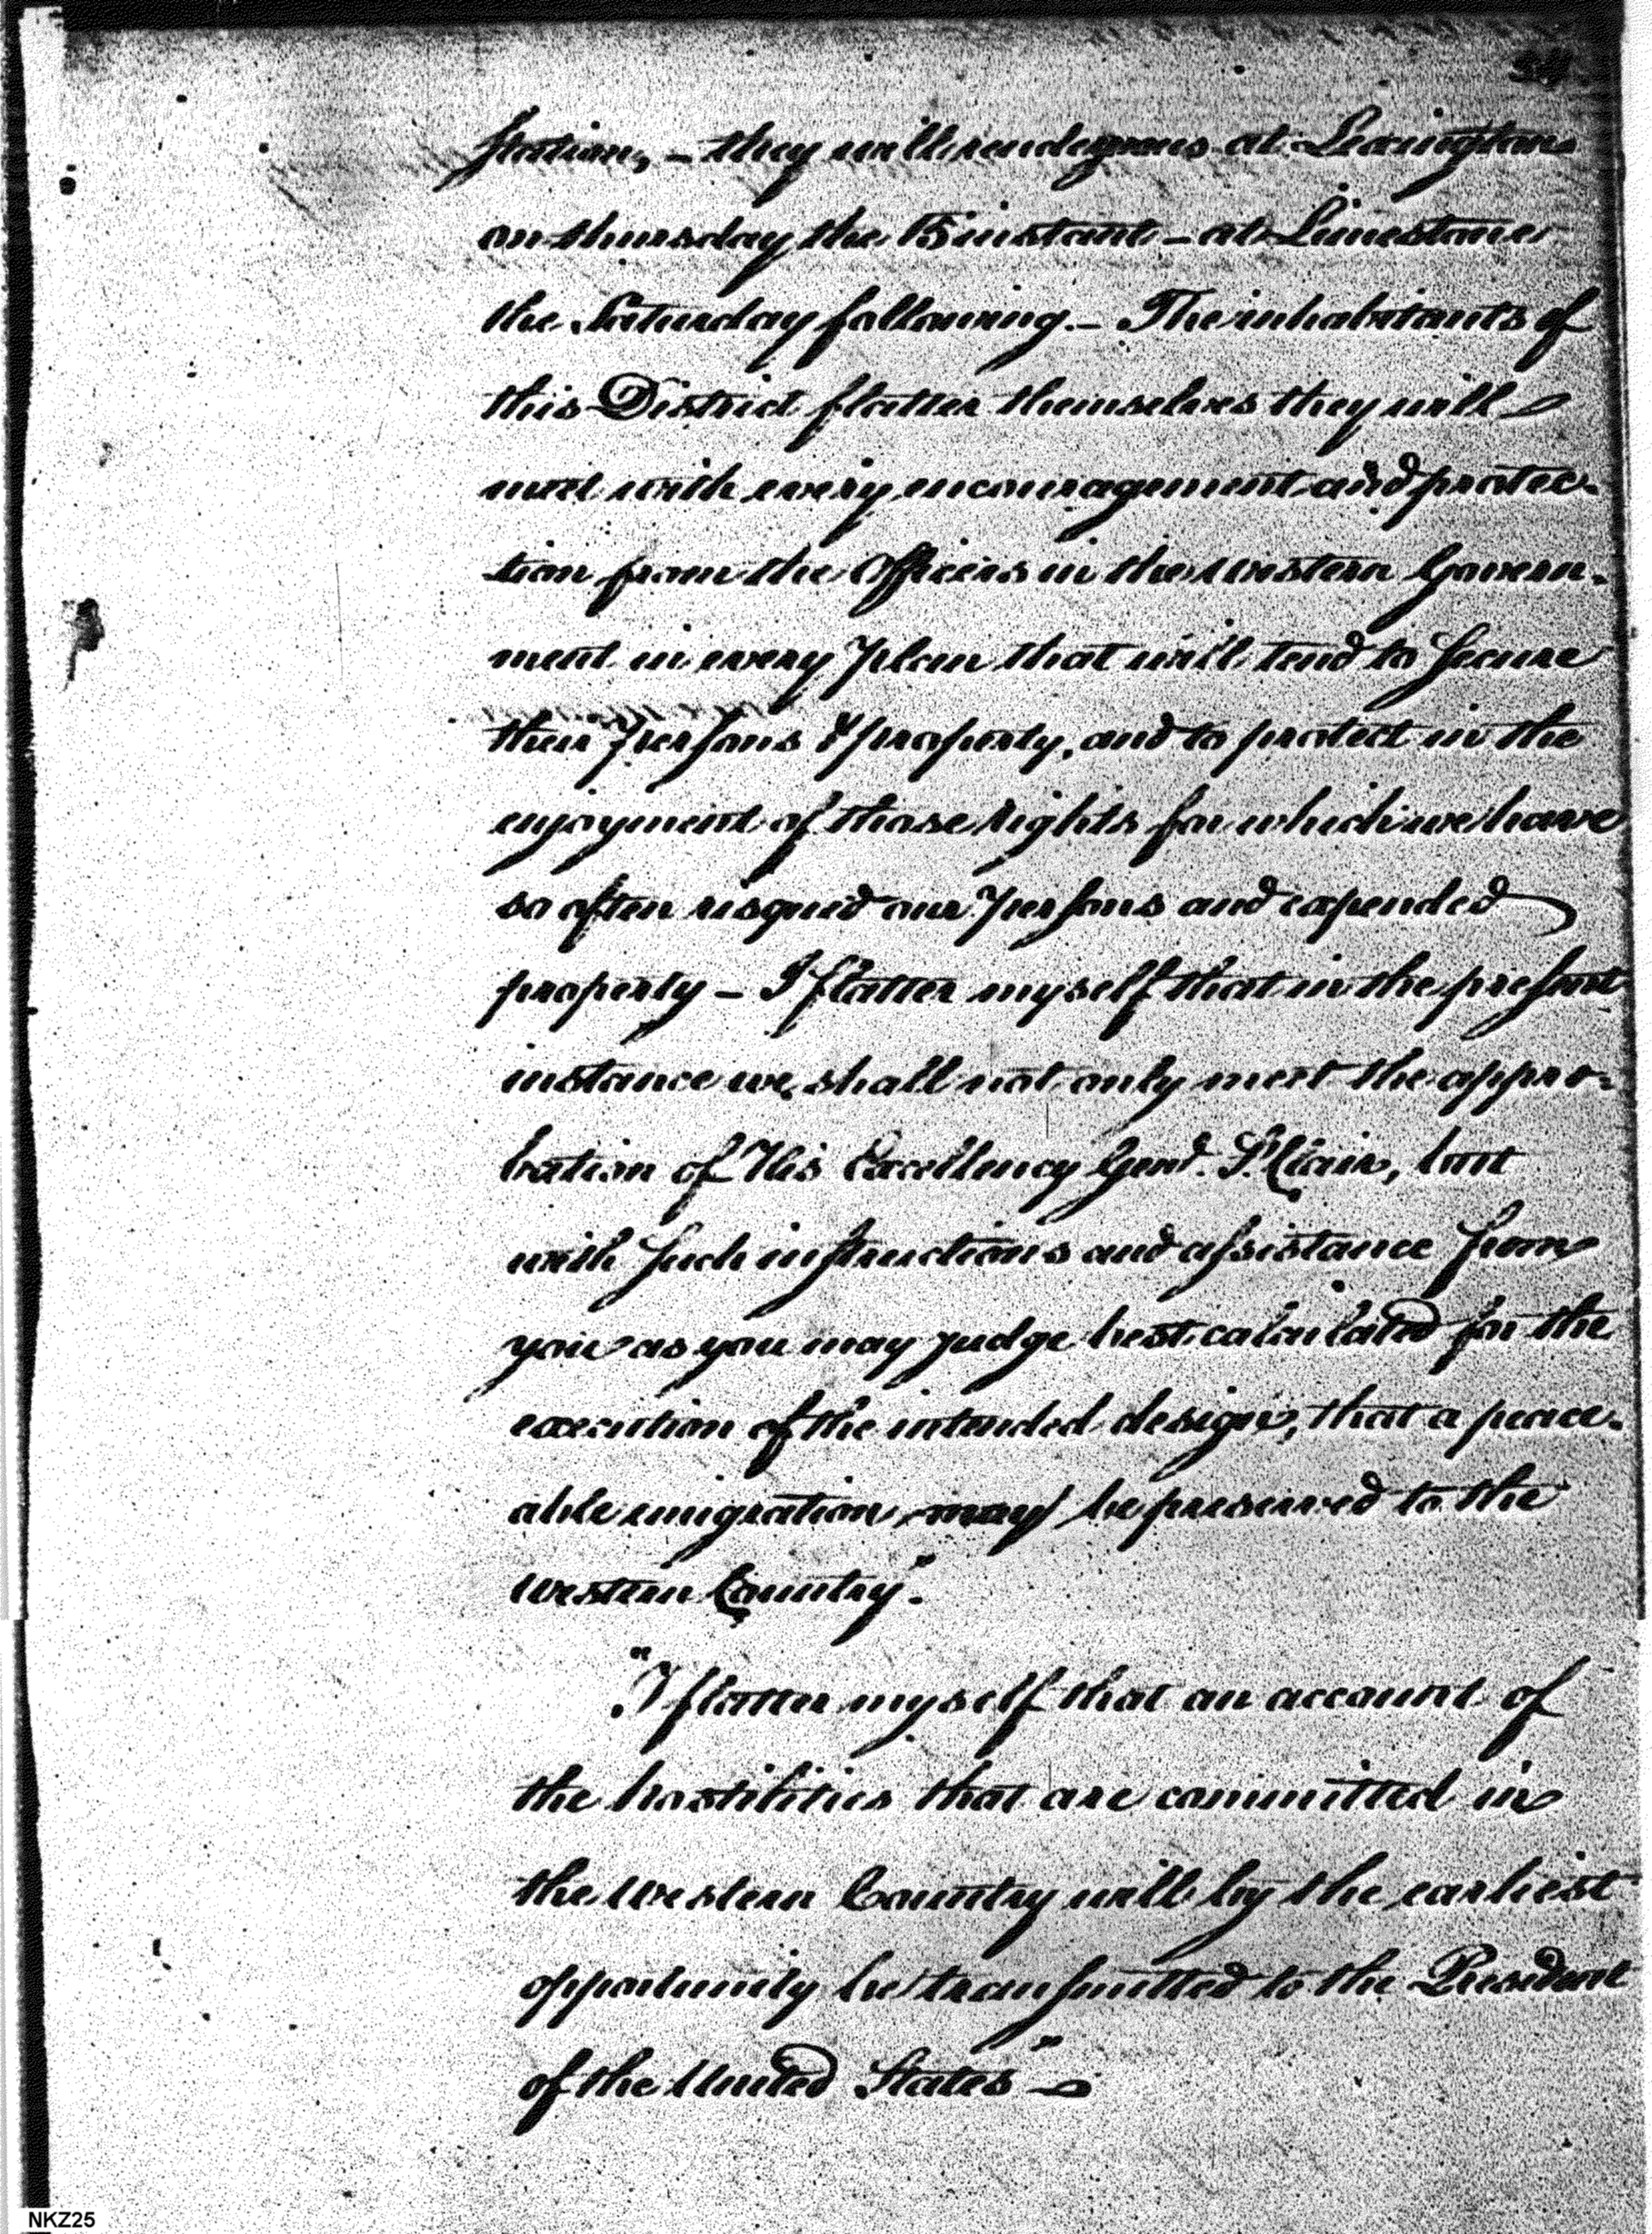 station, – they will rendezvous at Lexington
on thursday the 15 instant – at Limestone
the Saturday following. – The inhabitants of
this District flatter themselves they will
meet with every encouragement and protec-
tion from the Officers in the western Govern-
ment in every plan that will tend to secure
their persons & property, and to protect in the
enjoyment of those rights for which we have
so often risqued our persons and expended
property – I flatter myself that in the present
instance we shall not only meet the appro-
bation of His Excellency Genl. St. Clair, but
with such instructions and assistance from
you as you may judge best calculated for the
execution of the intended design, that a peace-
able emigration may be preserved to the
western Country".
"I flatter myself that an account of
the hostilities that are committed in
the western Country will by the earliest
opportunity be transmitted to the President
of the United States" –
NKZ25